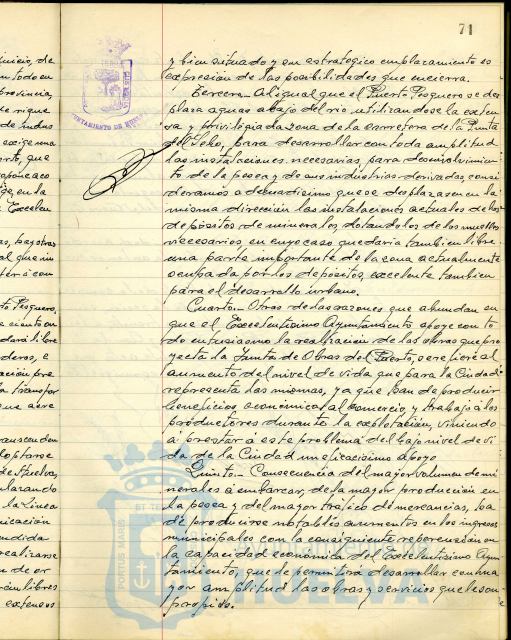 71
y bien situado y en estrategico emplazamiento es
expresión de las posibilidades que encierra.
Tercera.- Al igual que el Puerto Pesquero se des
plaza aguas abajo del rio utilizandose la exten
sa y privilegiada zona de la carretera de la Punta
del Sebo, para desarrollar con toda amplitud
las instalaciones necesarias, para desenvolvimien
to de la pesca y de sus industrias derivadas consi
deramos adecuadisimo que se desplazasen en la
misma dirección las instalaciones actuales de los
depósitos de minerales dotandolos de los muelles
necesarios en cuyo caso quedaria tambien libre
una parte importante de la zona actualmente
ocupada por los depósitos, excelente tambien
para el desarrollo urbano.
Cuarto.- Otras de las razones que abundan en
que el Excelentisimo Ayuntamiento apoye con to
do entusiasmo la realización de las obras que pro
yecta la Junta de Obras del Puerto, se refiere al
aumento del nivel de vida que para la Ciudad
representa las mismas, ya que han de producir
beneficios, economicos al comercio, y trabajo a los
productores durante la explotación, viniendo
á prestar á este problema del bajo nivel de vi
da de la Ciudad un eficacisimo apoyo
Quinto.- Consecuencia del mayor volumen de mi
nerales á embarcar, de la mayor producción en
la pesca y del mayor tráfico de mercancias, ha
de producirse notables aumentos en los ingresos
municipales con la consiguiente repercusión en
la capacidad económica del Excelentisimo Ayun
tamiento, que le permitirá desarrollar con ma
yor amplitud las obras y servicios que le son
propios.
PORTUS MARIS
HUELVA